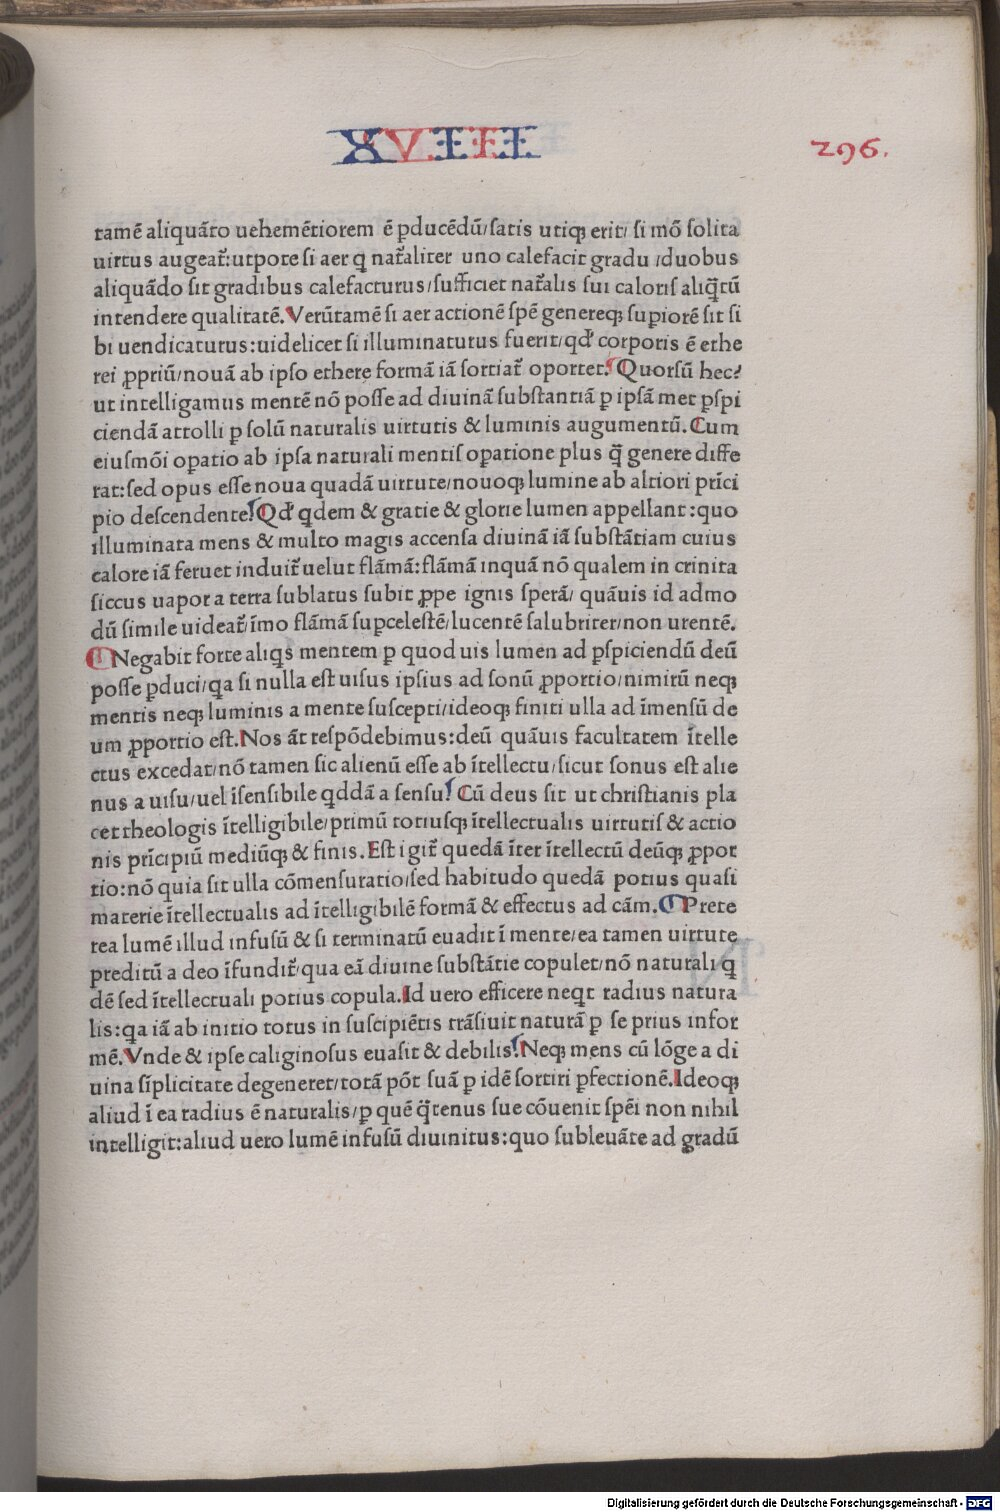 XVIII
296.
tamẽ aliquãto uehemẽtiorem ẽ ꝑducẽdũ/satis utiqꝫ erit/ si mõ solita
uirtus augeat᷑:utpote si aer q̃ nat᷑aliter uno calefacit gradu /duobus
aliquãdo sit gradibus calefacturus/sufficiet nat᷑alis sui caloris aliq̃tũ
intendere qualitatẽ.Verũtamẽ si aer actionẽ spẽ genereqꝫ suꝑiorẽ sit si
bi uendicaturus:uidelicet si illuminaturus fuerit/qd᷑ corporis ẽ ethe
rei ꝓpriũ/nouã ab ipso ethere formã iã sortiat᷑ oportet.Quorsũ hec?
ut intelligamus mentẽ nõ posse ad diuinã substantiã ꝑ ipsã met ꝑspi
ciendã attolli ꝑ solũ naturalis uirtutis & luminis augumentũ.Cum
eiusmõi oꝑatio ab ipsa naturali mentis oꝑatione plus q̃ genere diffe
rat:sed opus esse noua quadã uirtute/nouoqꝫ lumine ab altiori prĩci
pio descendente.Qd᷑ qdem & gratie & glorie lumen appellant:quo
illuminata mens & multo magis accensa diuinã iã substãtiam cuius
calore iã feruet induit᷑ uelut flãmã:flãmã inquã nõ qualem in crinita
siccus uapor a terra sublatus subit ꝓpe ignis sperã/ quãuis id admo
dũ simile uideat᷑/ĩmo flãmã suꝑcelestẽ/lucentẽ salubriter/non urentẽ.
Negabit forte aliqs mentem ꝑ quod uis lumen ad ꝑspiciendũ deũ
posse ꝑduci/qa si nulla est uisus ipsius ad sonũ ꝓportio/nimirũ neqꝫ
mentis neqꝫ luminis a mente suscepti/ideoqꝫ finiti ulla ad ĩmensũ de
um ꝓportio est.Nos ãt respõdebimus:deũ quãuis facultatem ĩtelle
ctus excedat/nõ tamen sic alienũ esse ab ĩtellectu/sicut sonus est alie
nus a uisu/uel ĩsensibile qddã a sensu.Cũ deus sit ut christianis pla
cet theologis ĩtelligibile/primũ totiusqꝫ ĩtellectualis uirtutis & actio
nis prĩcipiũ mediũqꝫ & finis.Est igit᷑ quedã ĩter ĩtellectũ deũqꝫ ꝓpor
tio:nõ quia sit ulla cõmensuratio/sed habitudo quedã potius quasi
materie ĩtellectualis ad ĩtelligibilẽ formã & effectus ad cãm.Prete
rea lumẽ illud infusũ & si terminatũ euadit ĩ mente/ea tamen uirtute
preditũ a deo ĩfundit᷑/qua eã diuine substãtie copulet/nõ naturali q̃
dẽ sed ĩtellectuali potius copula.Id uero efficere neqt radius natura
lis:qa iã ab initio totus in suscipiẽtis trãsiuit naturã ꝑ se prius infor
mẽ.Vnde & ipse caliginosus euasit & debilis.Neqꝫ mens cũ lõge a di
uina sĩplicitate degeneret/totã põt suã ꝑ idẽ sortiri ꝑfectionẽ.Ideoqꝫ
aliud ĩ ea radius ẽ naturalis/ꝑ quẽ q̃tenus sue cõuenit spẽi non nihil
intelligit:aliud uero lumẽ infusũ diuinitus:quo subleuãte ad gradũ
Digitalisierung gefördert durch die Deutsche Forschungsgemeinschaft - DFG